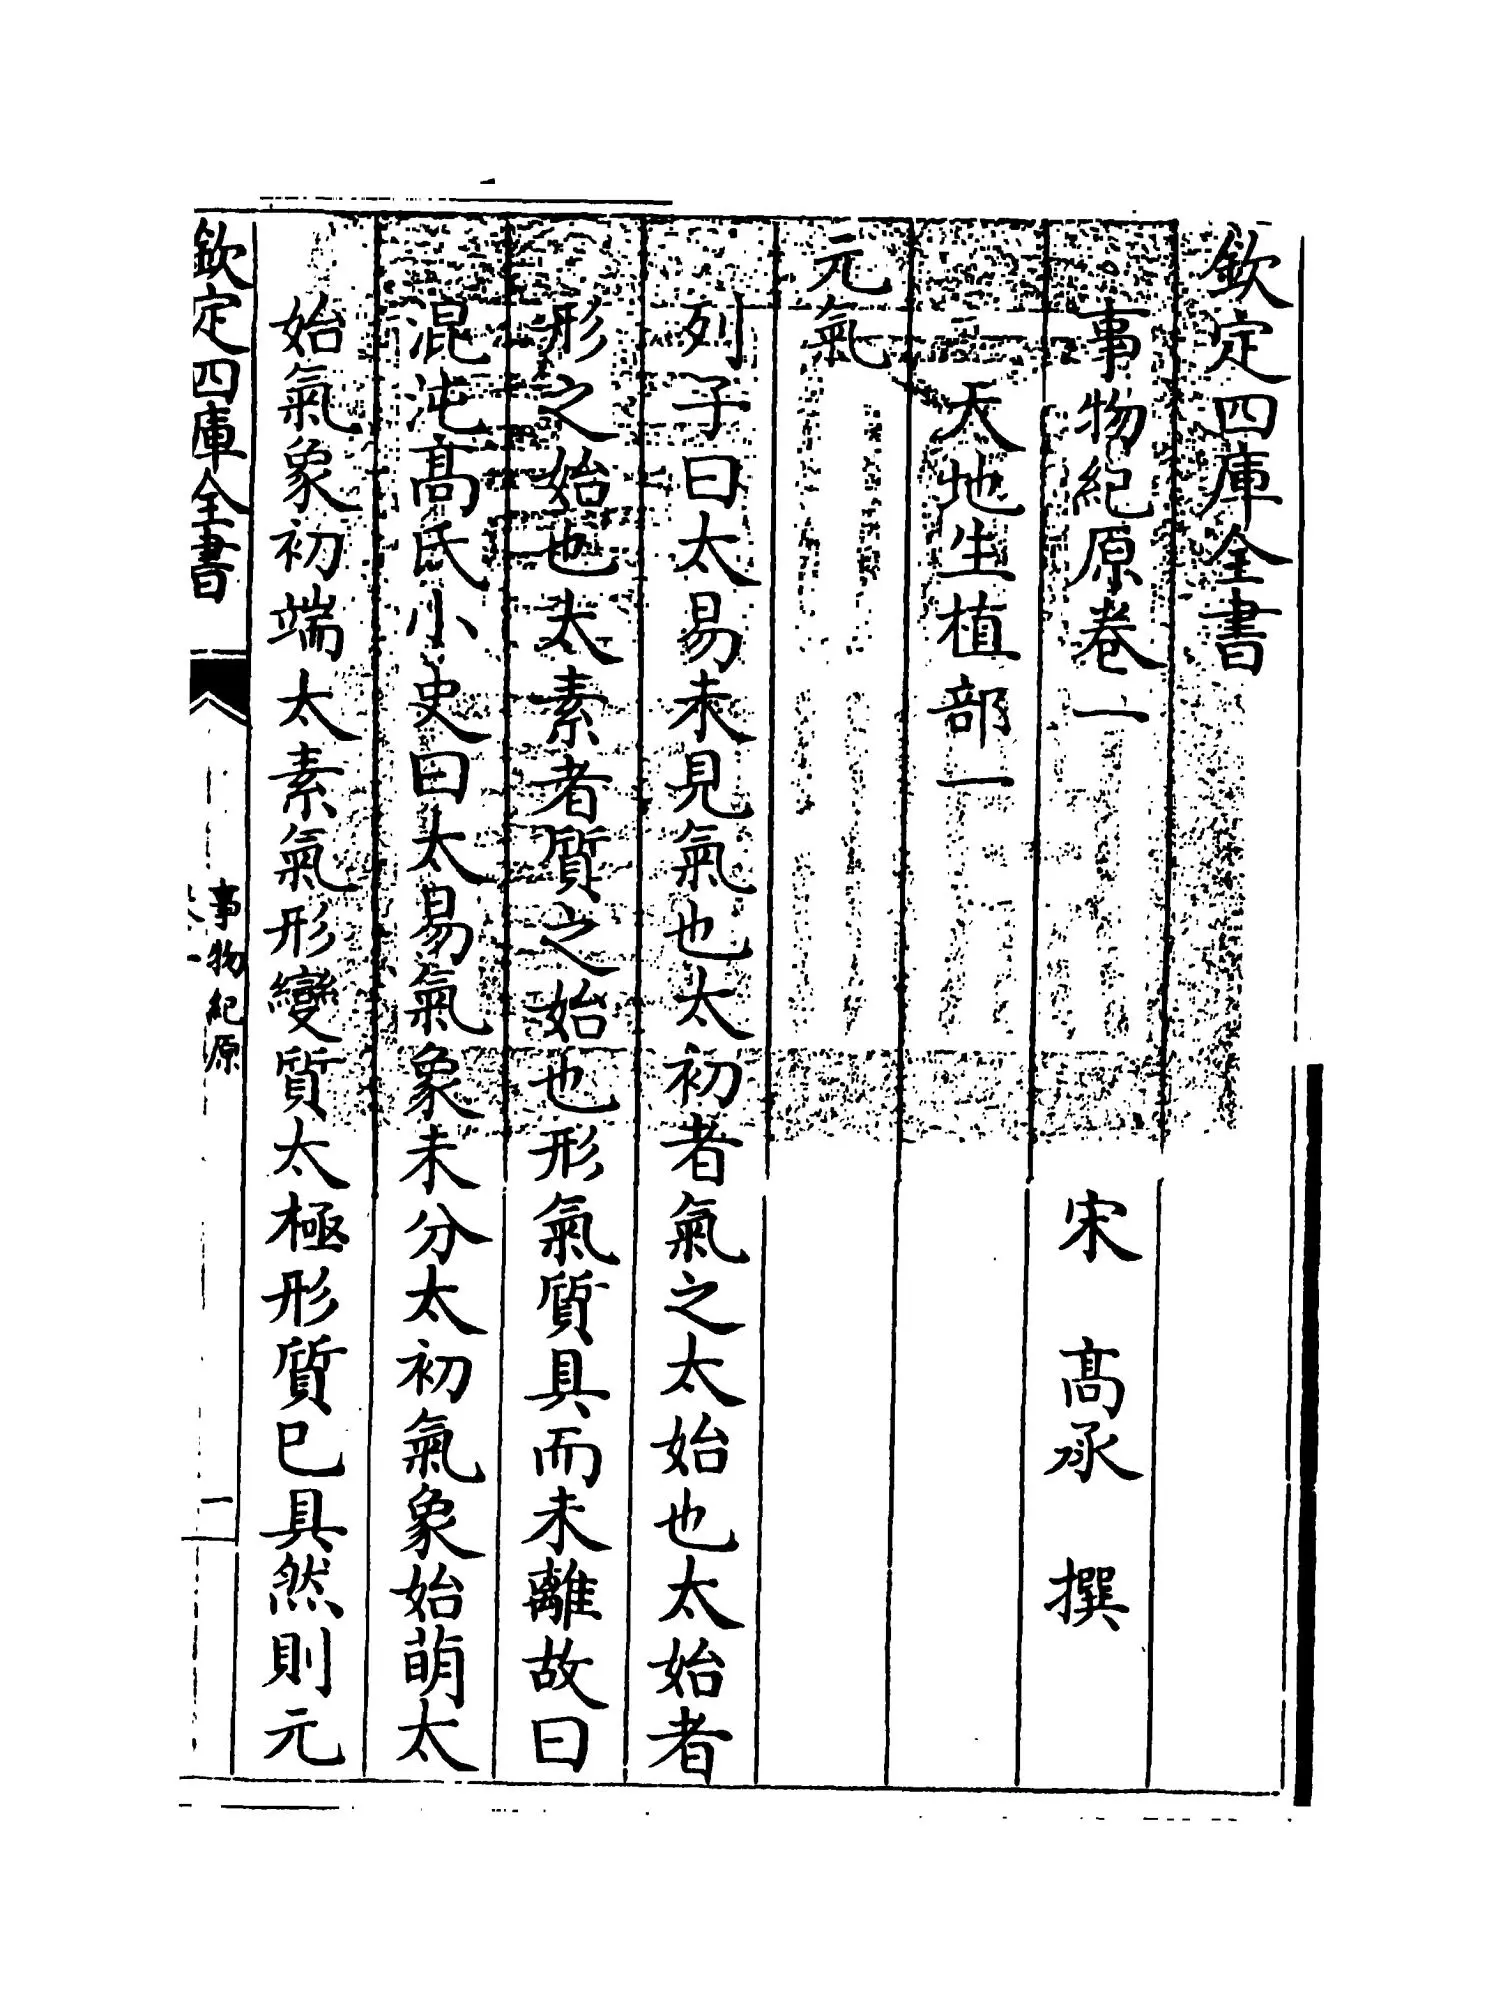 欽定四庫全書
事物紀原卷一
宋 髙承 撰
天地生植部一
元氣
列子曰太易未見氣也太初者氣之太始也太始者
形之始也太素者質之始也形氣質具而未離故曰
混沌髙氏小史曰太易氣象未分太初氣象始萌太
始氣象初端太素氣形變質太極形質已具然則元
欽定四庫全書
事物紀原
一